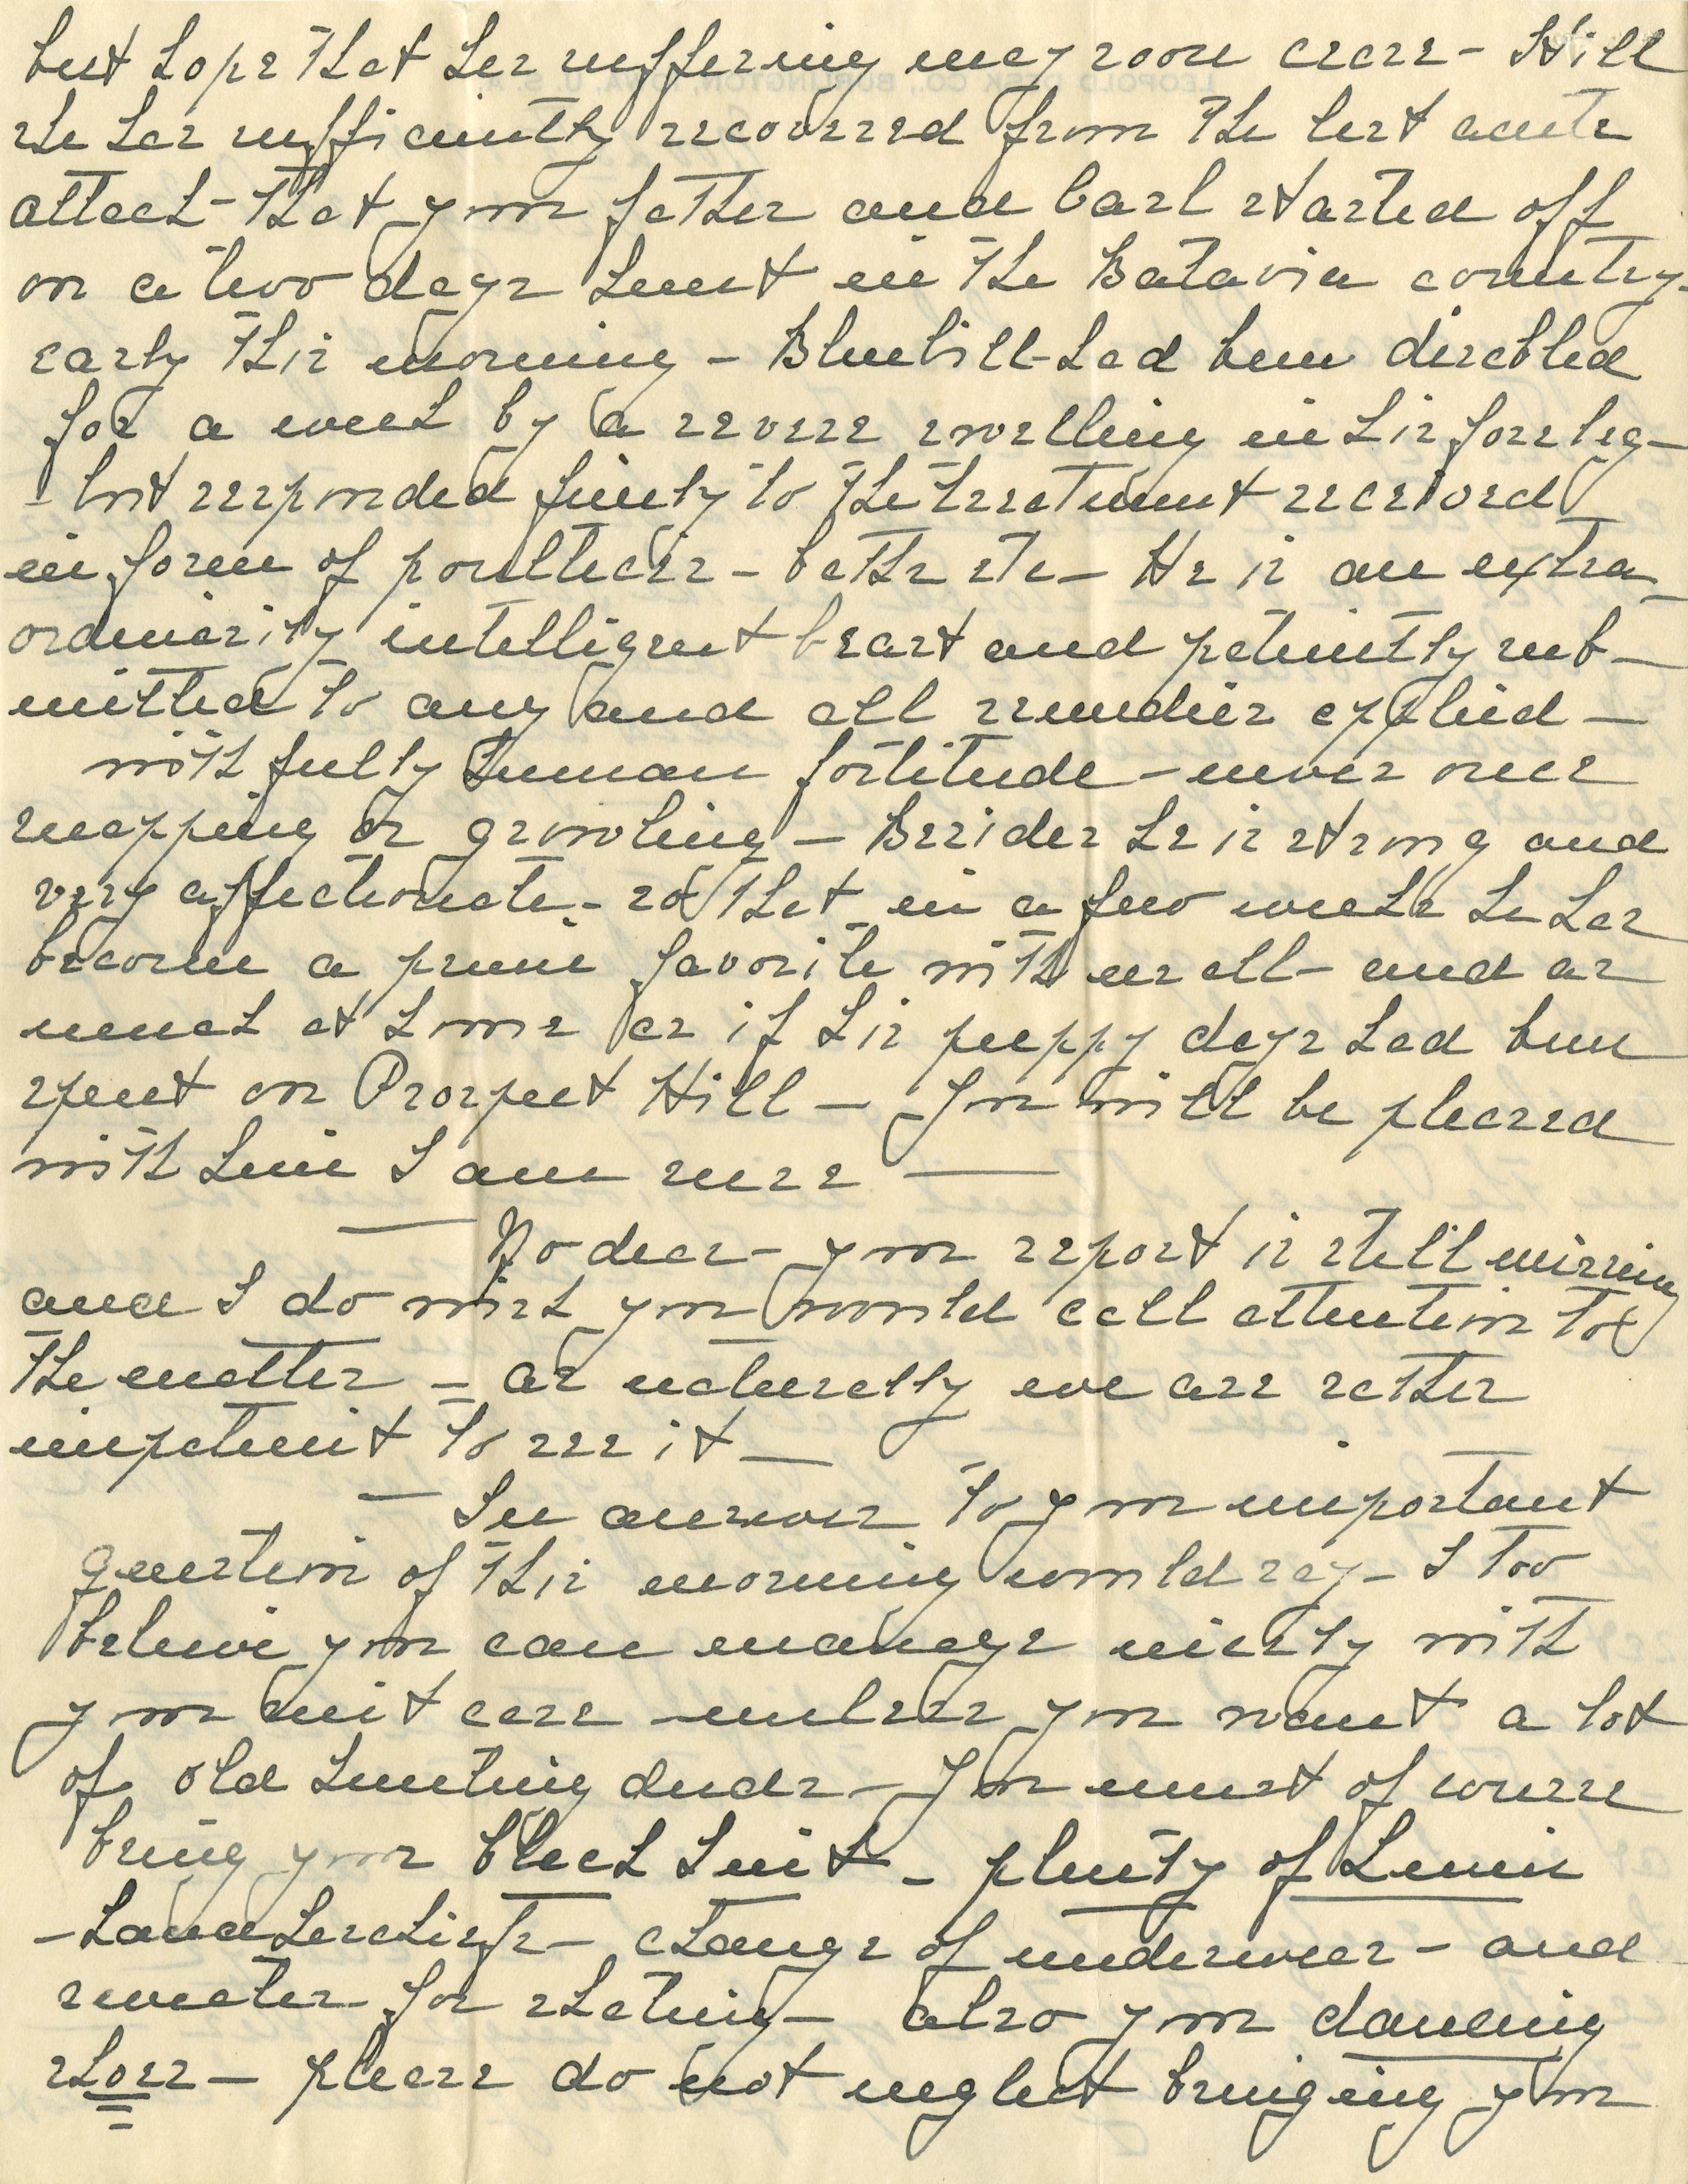 but hope that her suffering may soon cease - Still
she has sufficiently recovered from the last acute
attack - that your father and Carl started off
on a two days hunt in the Batavia country -
early this morning - Bluebill - had been disabled
for a week by a severe swelling in his fore leg -
- but responded finely to the treatment received
in form of poultices - baths etc - He is an extra-
ordinarily intelligent beast and patiently sub-
mitted to any and all remedies applied -
with fully human fortitude - never once
snapping or growling - Besides he is strong and
very affectionate - so that in a few weeks he has
become a prime favorite with us all - and as
much at home as if his puppy days had been
spent on Prospect Hill - You will be pleased
with him I am sure -
- No dear - your report is still missing
and I do wish you would call attention to
the matter - as naturally we are rather
impatient to see it -
- In answer to your important
question of this morning would say - I too
believe you can manage nicely with
your suit case - unless you want a lot
of old hunting duds - You must of course
bring your black suit - plenty of Linen
- handkerchiefs - change of underwear - and
sweater for skating - also your dancing
shoes - please do not neglect bringing your